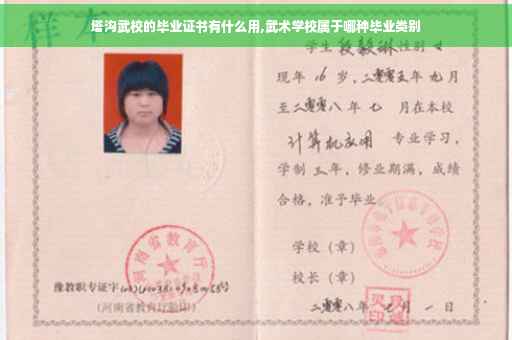 塔沟武校的毕业证书有什么用,武术学校属于哪种毕业类别
样本
学生 段毅琳 性别 女
现年 16 岁,二零零五年 九月
至二零零八年 七 月在本校
计算机应用 专业学习,
学制 三 年,修业期满,成绩
合格,准予毕业
学校(章)
校长(章)
二零零八年 月 一 日
河南省教育厅
豫教职专证字
(河南省教育厅验印)